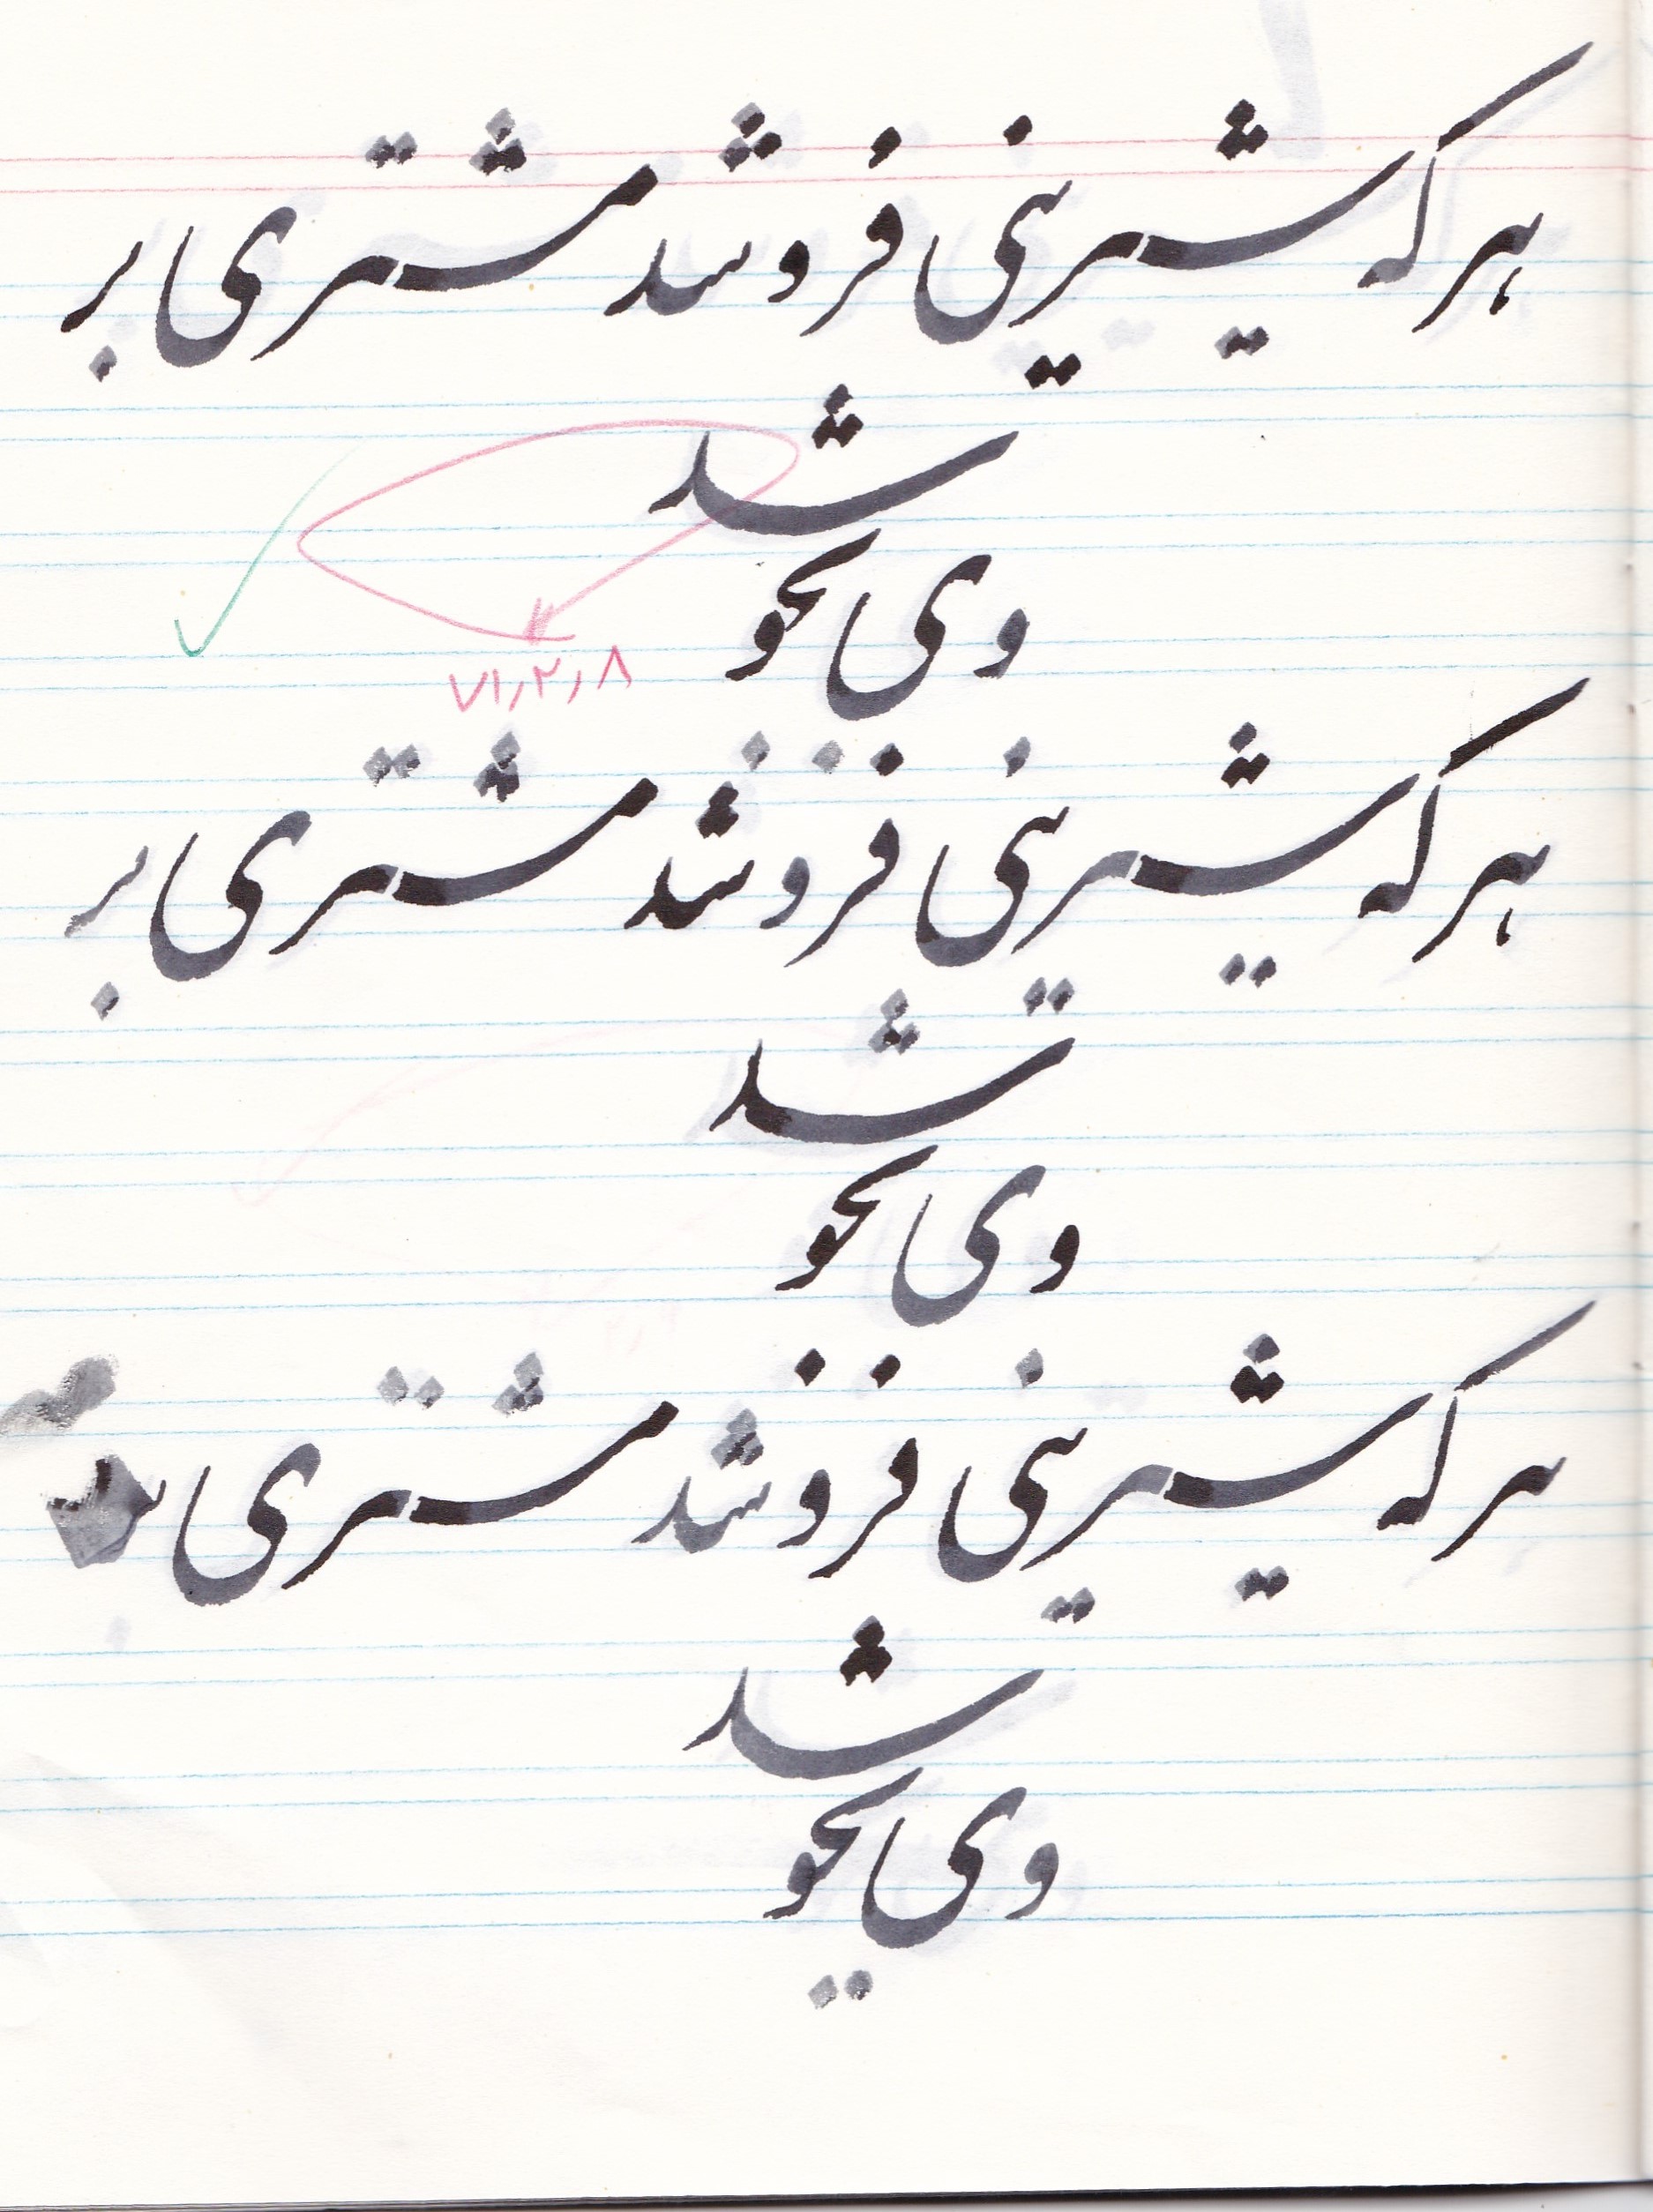 هر که شیرینی فروشد مشتری بر
شد
وی بجو
۷۱٫۲٫۸
هر که شیرینی فروشد مشتری بر
شد
وی بجو
هر که شیرینی فروشد مشتری
شد
وی بجو